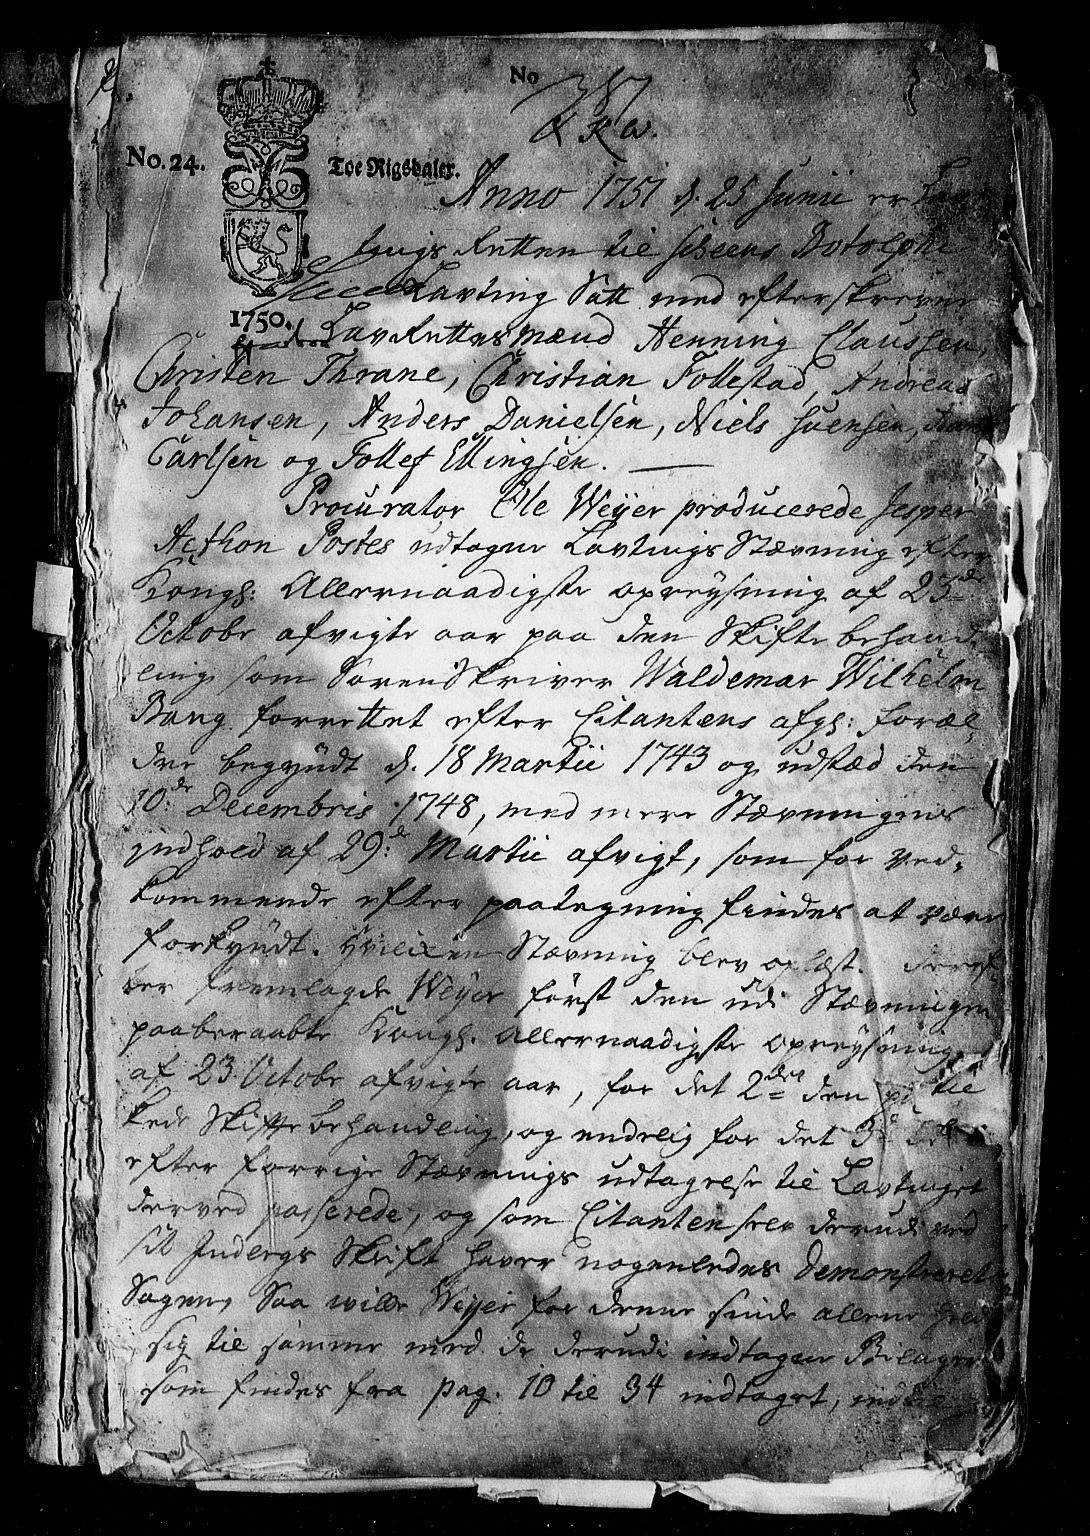 No
387
No. 24. Toe Rigsdaler.
Anno 1751 d. 25 Junii er
tings Retten til Scheens Botolphi
Lavting Satt med efterskrevne
1750. LavRettesmænd Henning Claussen,
Christen Thrane, Christian Follestad, Andreas
Johansen, Anders Danielsen, Niels Svensen,
Carlsen og Tollef Ellingsen.
Procurator Ole Weyer producerede Jesper
Acthon Postes udtagne Lavtings Stævning efter
Kongl: Allernaadigste opreysning af 23de
Octobr afvigte aar paa den Skifte behand-
ling som SorenSkriver Waldemar Wilhelm
Bang forrettet efter Citantens afgl: foræl,
dre begyndt d. 18 Martii 1743 og udstæd den
10de Decembris 1748, med mere Stævningens
indhold af 29d Martii afvigt, som for ved,
kommende efter paategning findes at være
forkyndt. Hvilken Stævning blev oplæst. Deref
ter fremlagde Weyer først den udi Stævningen
paaberaabte Kongl. Allernaadigste opreysning
af 23 Octobr afvigte aar, for det 2det den til
kede Skifte behandling, og endelig for det 3d
efter forrige Stævnings udtagelse til Lavtinget
derved passerede, og som Citanten selv derudi ved
sit Indlergs Skrift haver nogenledes demonstreret
Sagen, Saa wille Weyer for denne sinde allene
sig til samme med de derudi indtagne Bilager
som findes fra pag. 10 til 34 indtaget,